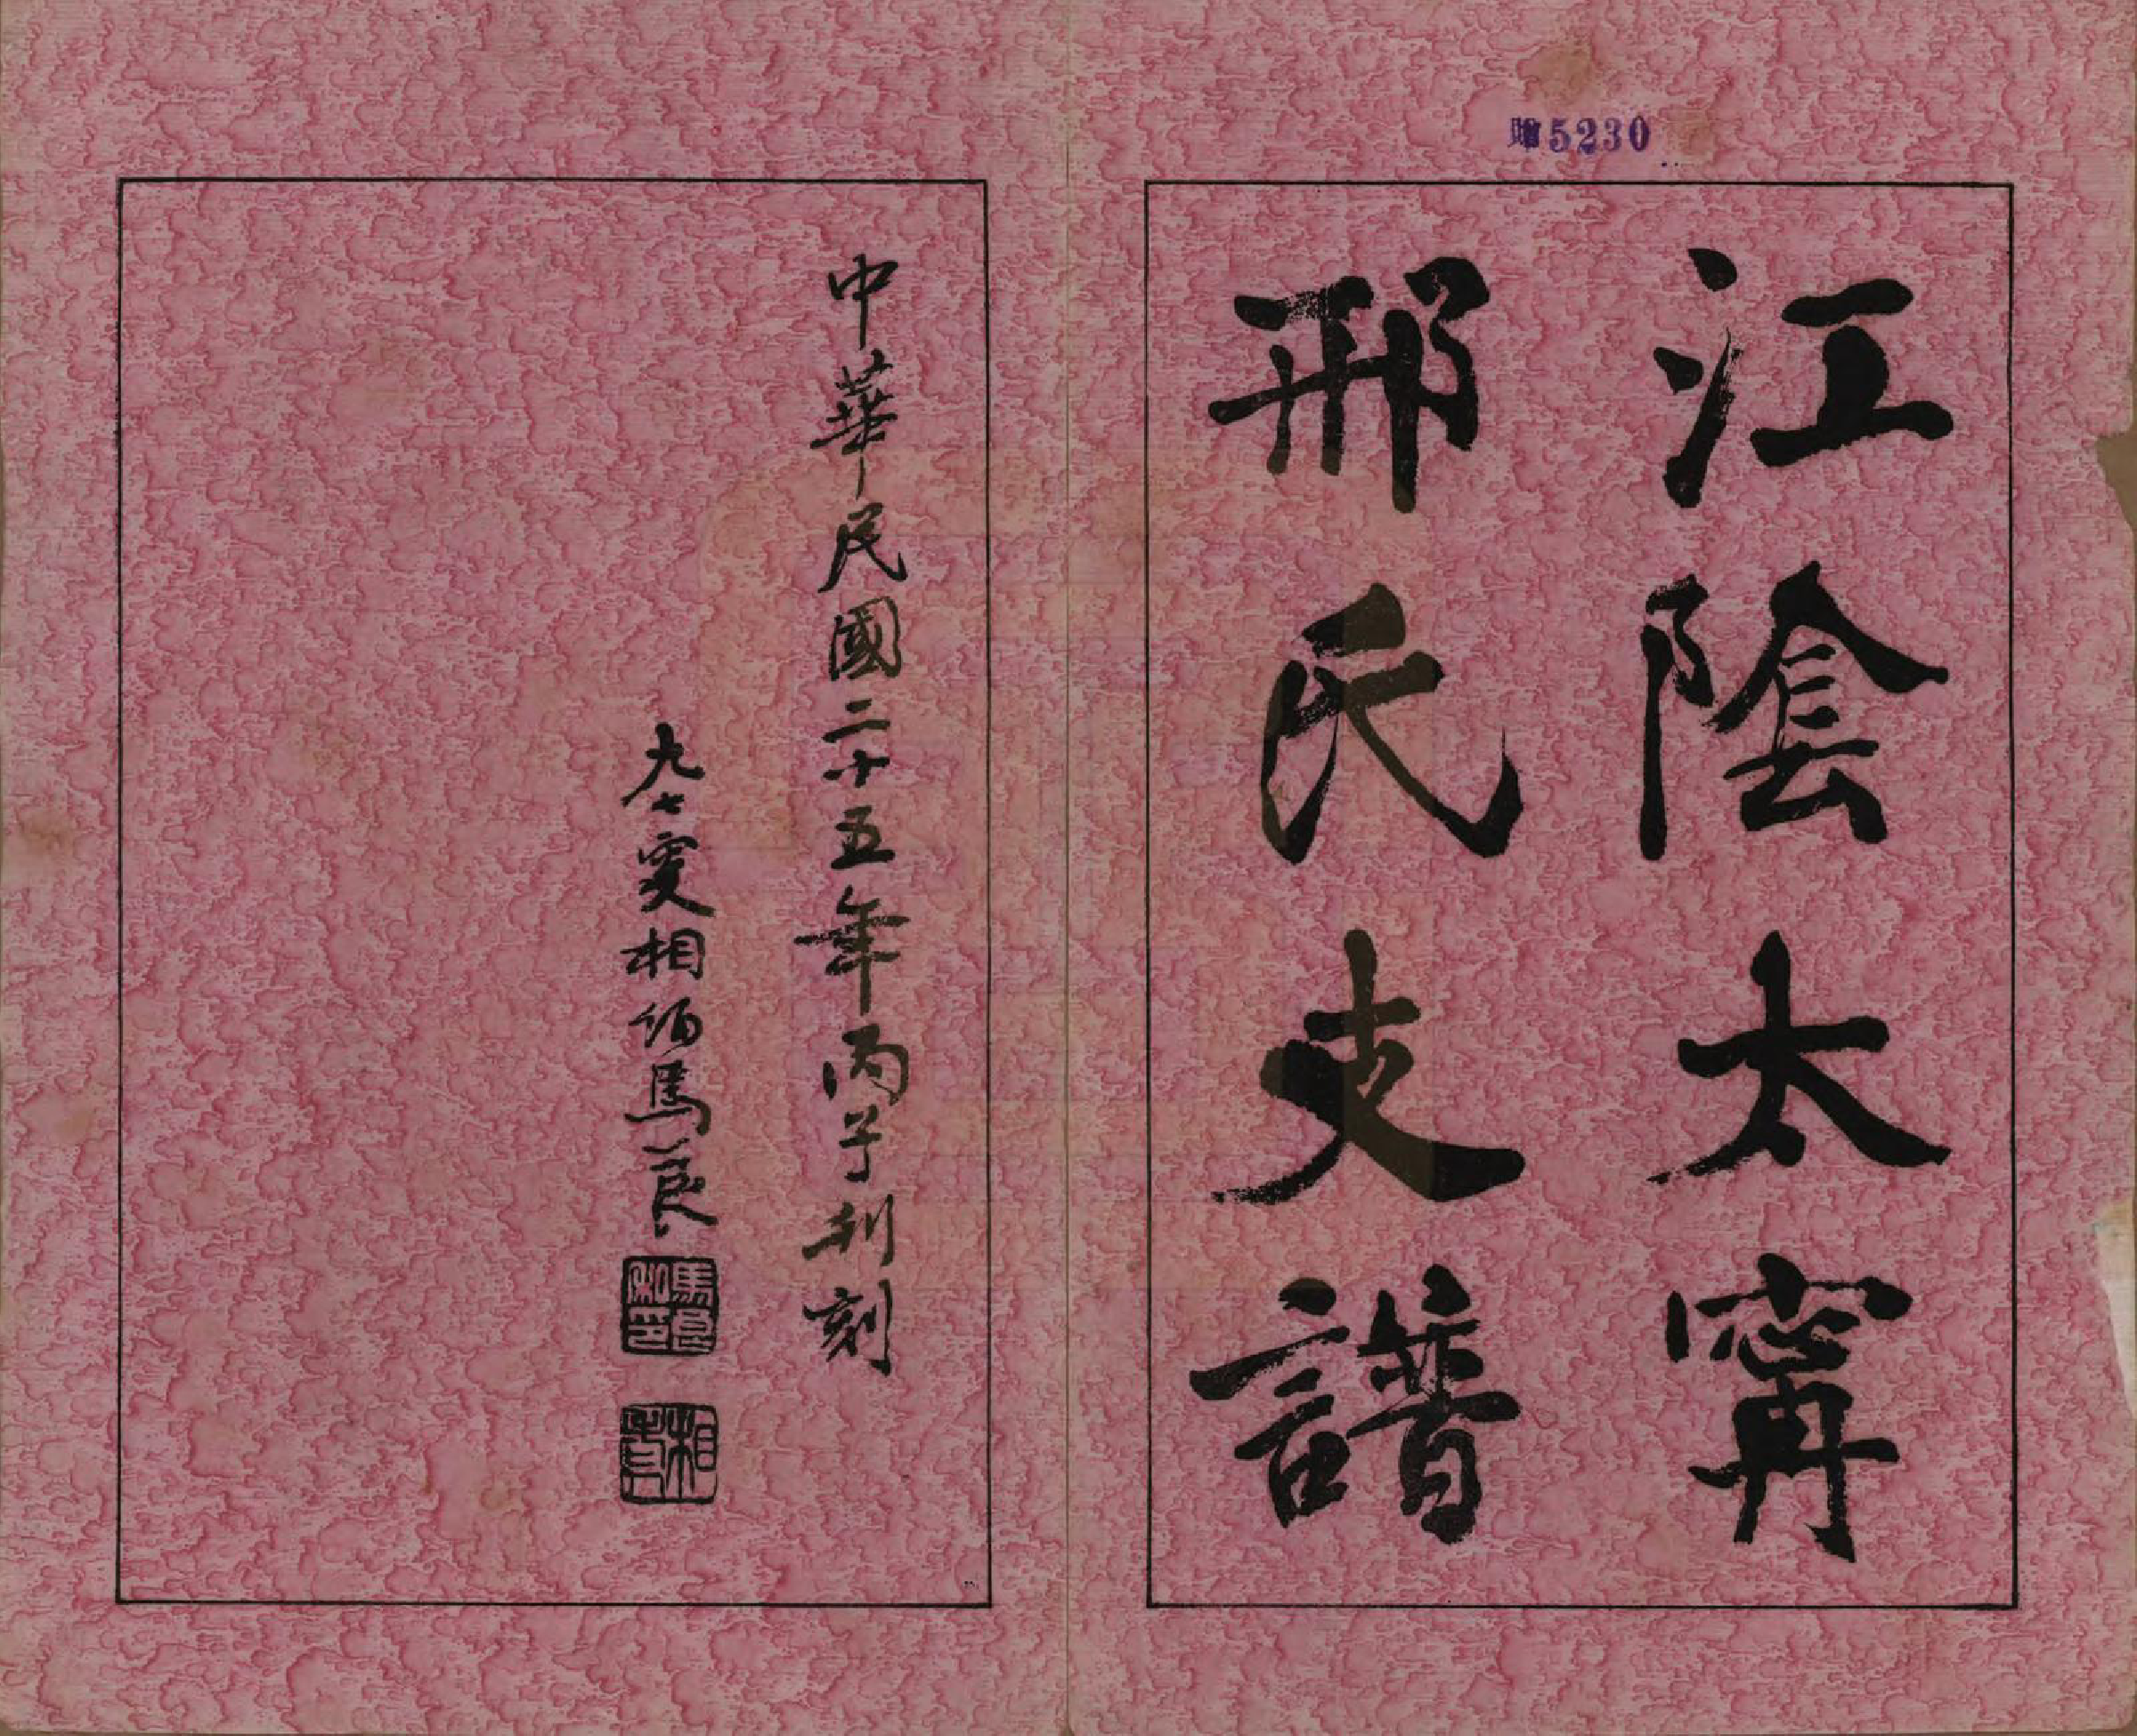 贈5230
江陰太甯
邢氏支譜
中華民國二十五年丙子刊刻
九七叟相伯馬良
馬良私印